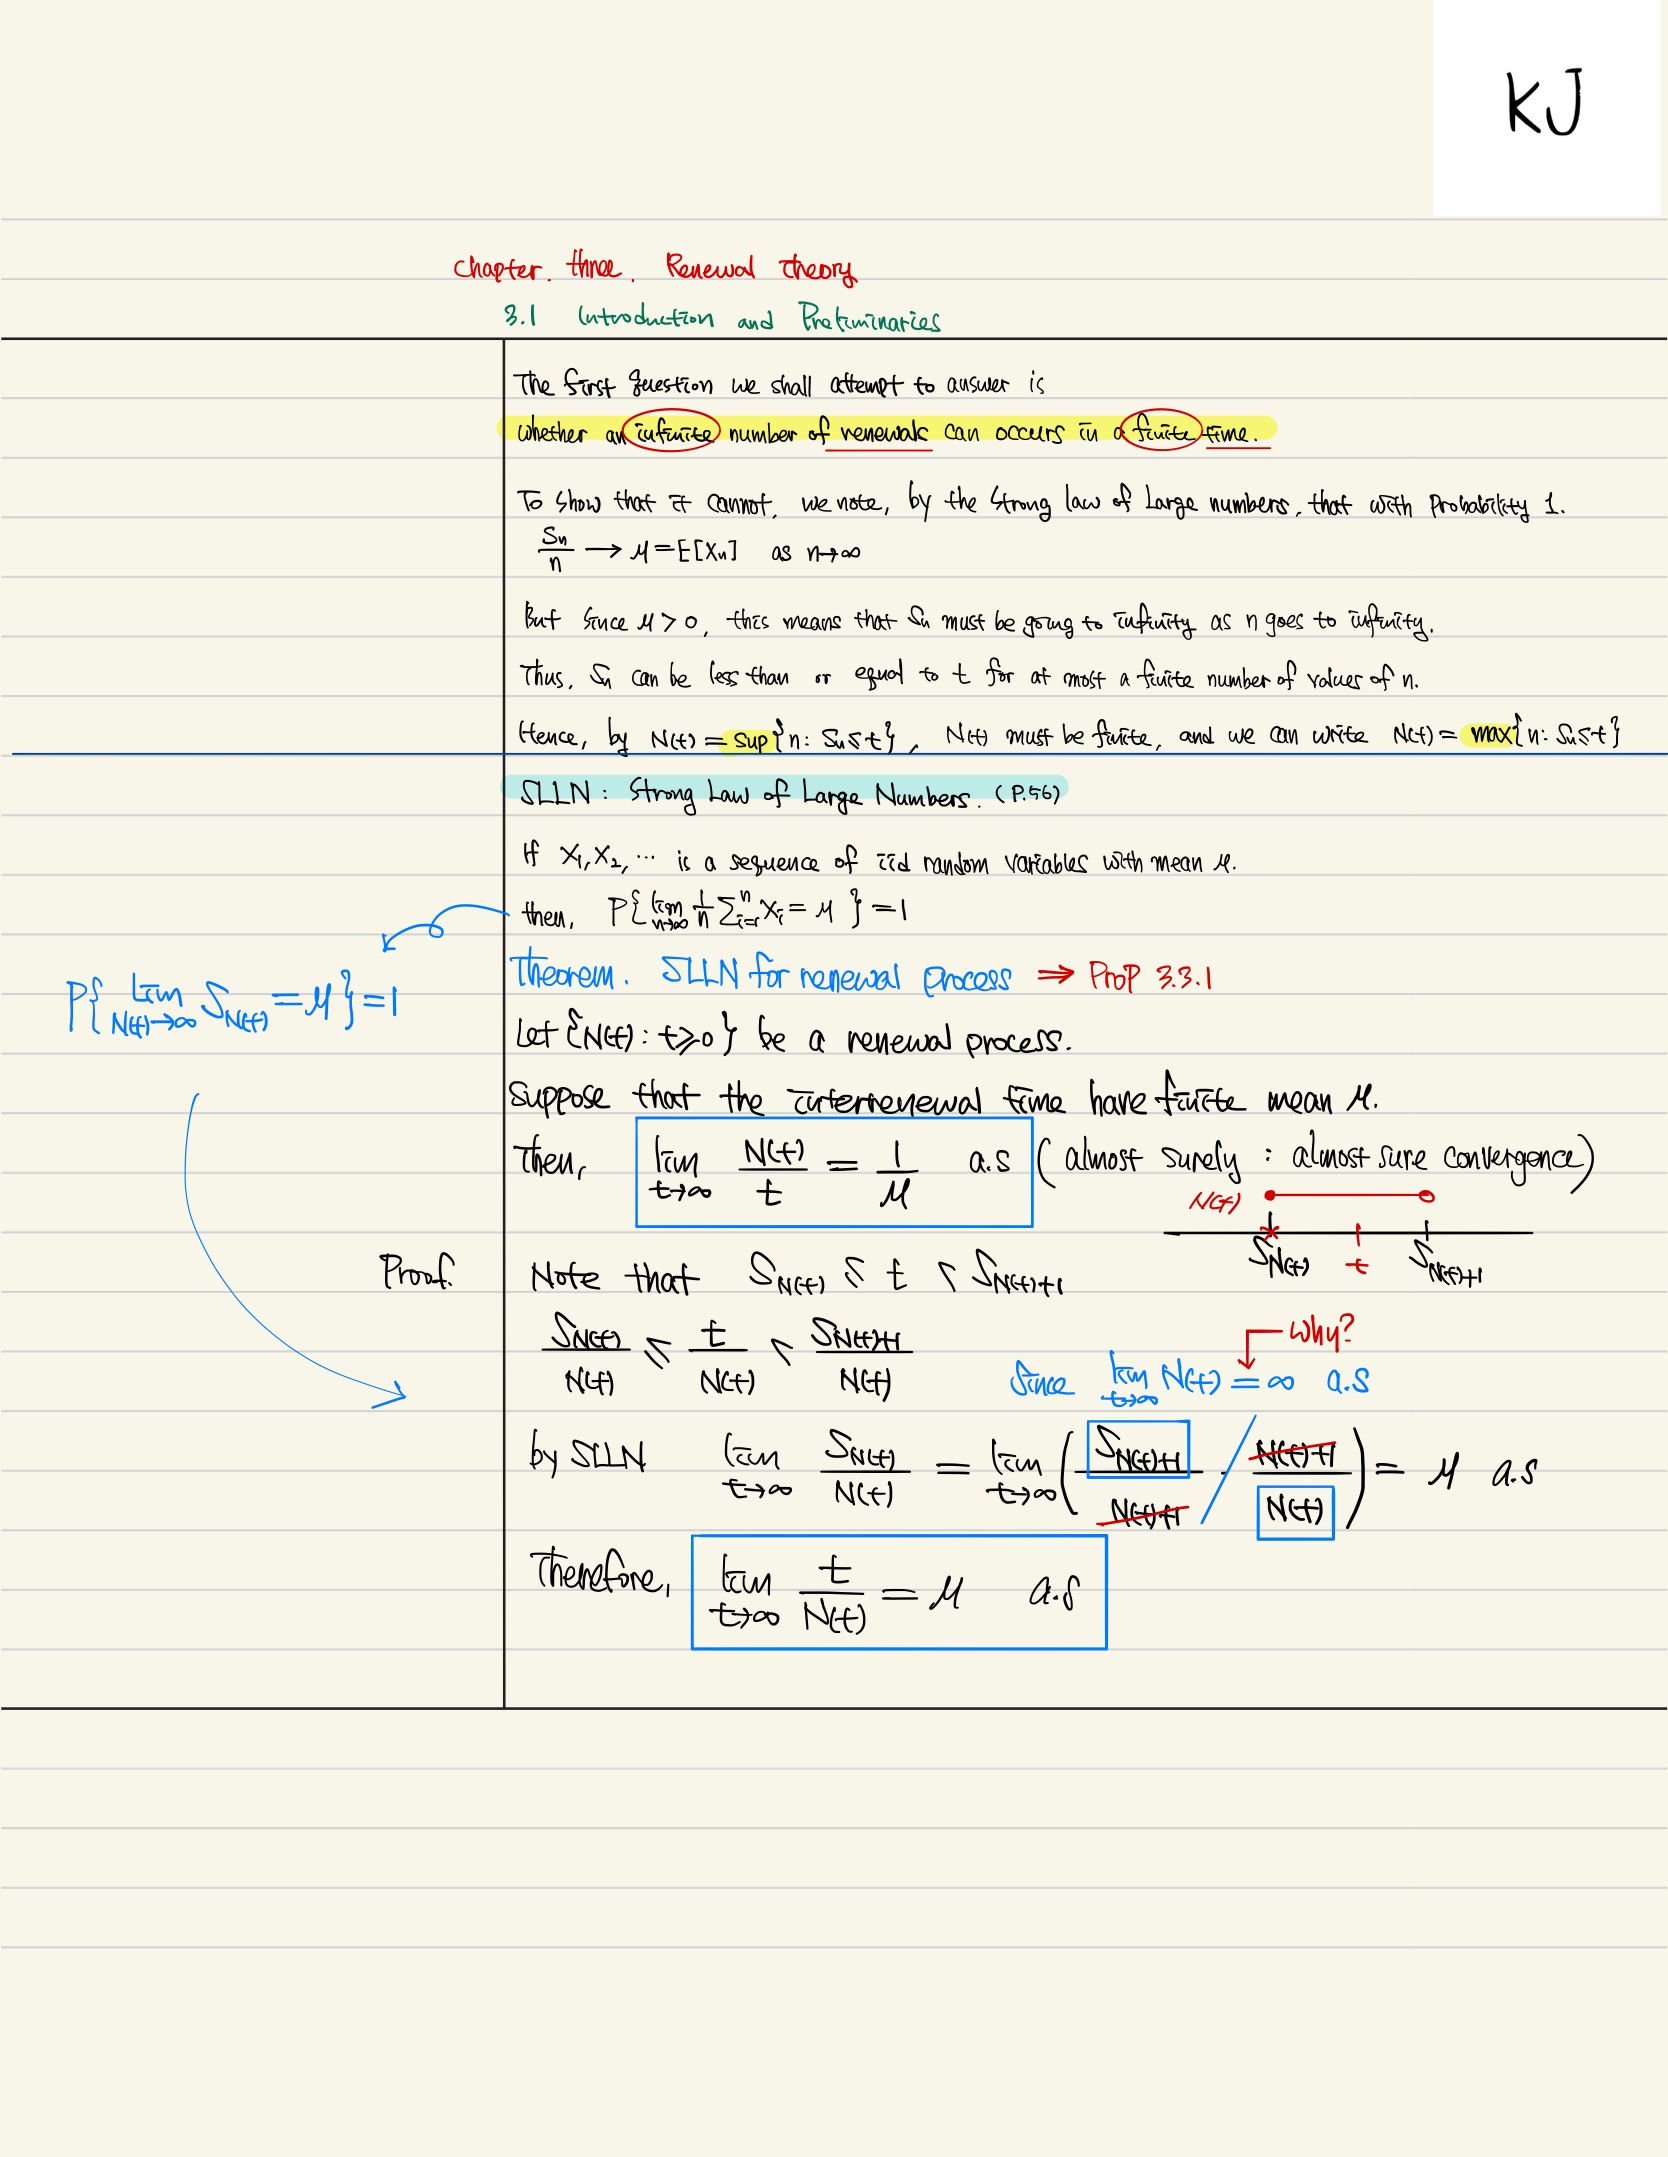 KJ
Chapter. three. Renewal Theory
3.1 Introduction and Preliminaries
The first question we shall attempt to answer is
whether an infinite number of renewals can occurs in a finite time.
To show that it cannot, we note, by the strong law of large numbers, that with probability 1.
Sn/n → μ = E[Xn] as n→∞
But since μ > 0, this means that Sn must be going to infinity as n goes to infinity.
Thus, Sn can be less than or equal to t for at most a finite number of values of n.
Hence, by N(t) = sup{n: Sn ≤ t}, N(t) must be finite, and we can write N(t) = max{n: Sn ≤ t}
SLLN: Strong Law of Large Numbers. (P.56)
If X₁, X₂, ⋯ is a sequence of iid random variables with mean μ.
then, P{lim n→∞ 1/n Σ_{i=1}^n Xi = μ} = 1
P{lim N(t)→∞ S_N(t) = μ} = 1
Theorem. SLLN for renewal process ⇒ Prop 3.3.1
Let {N(t): t ≥ 0} be a renewal process.
Suppose that the interrenewal time have finite mean μ.
Then, lim t→∞ N(t)/t = 1/μ a.s (almost surely : almost sure convergence)
N(t)
S_N(t) t S_N(t)+1
Proof. Note that S_N(t) ≤ t < S_N(t)+1
S_N(t)/N(t) ≤ t/N(t) < S_N(t)+1/N(t)
Why?
Since lim t→∞ N(t) = ∞ a.s
by SLLN lim t→∞ S_N(t)/N(t) = lim t→∞ (S_N(t)+1/N(t)+1 · N(t)+1/N(t)) = μ a.s
Therefore, lim t→∞ t/N(t) = μ a.s